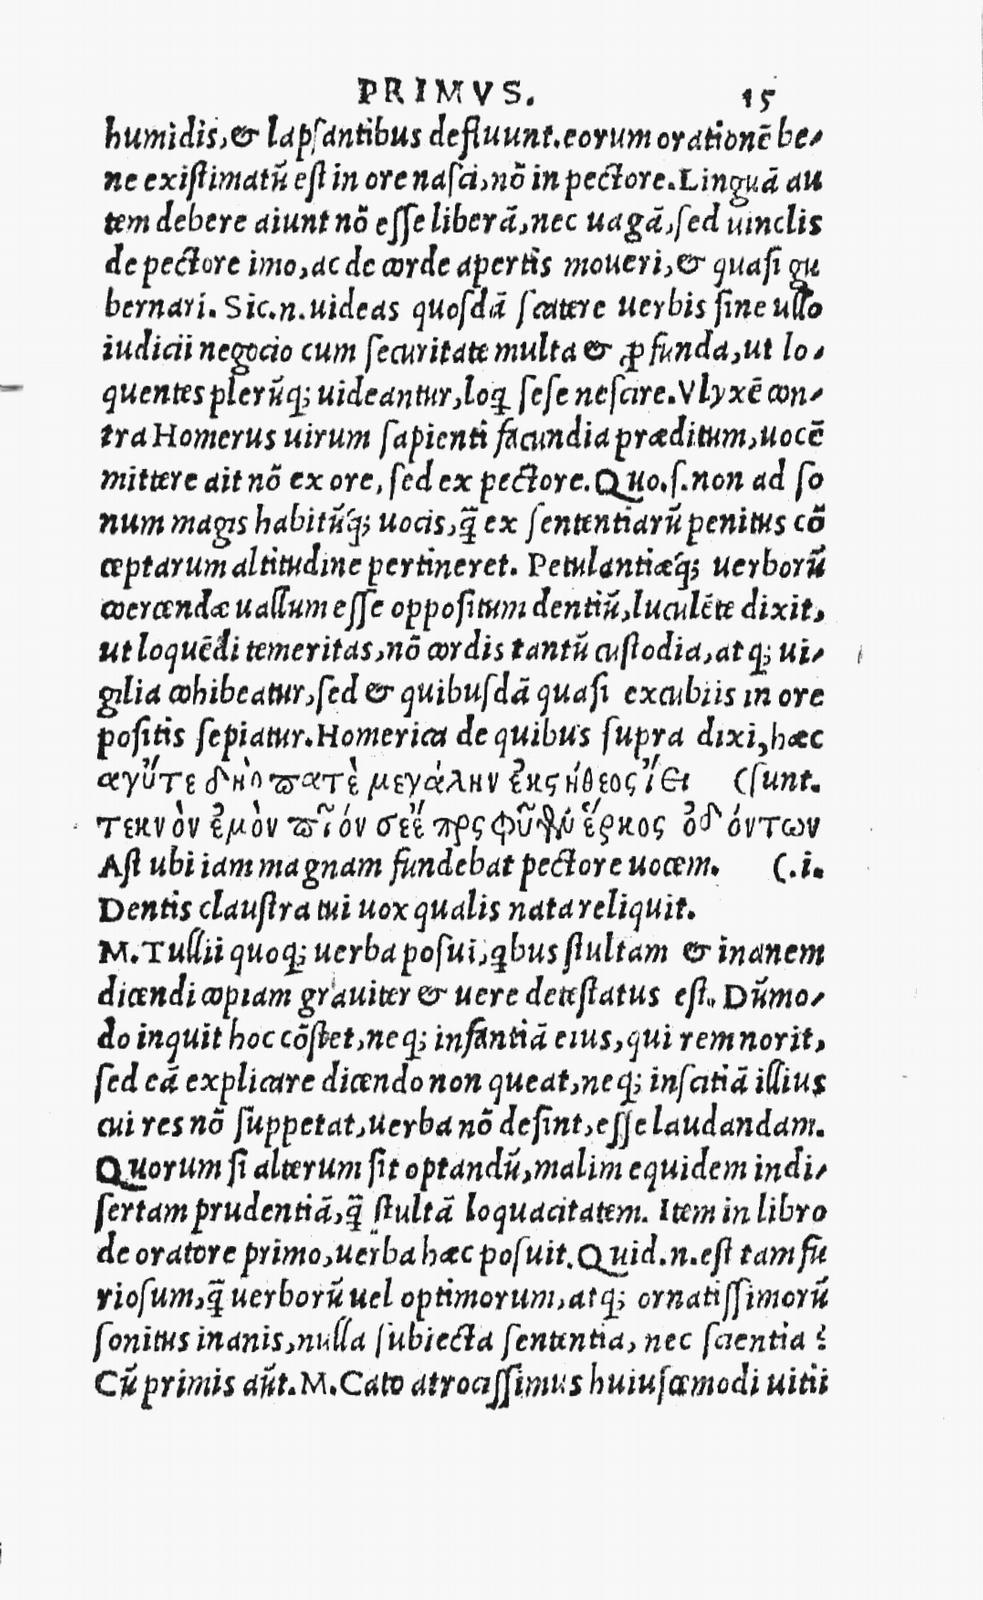 PRIMVS. 15
humidis,& lapſantibus defluunt.eorum orationē be-
ne exiſtimatū eſt in ore naſci,nō in pectore.Linguā au
tem debere aiunt nō eſſe liberā,nec uagā,ſed uinclis
de pectore imo,ac de corde apertis moueri,& quaſi gu
bernari. Sic.n.uideas quoſdā ſcatere uerbis ſine ullo
iudicii negocio cum ſecuritate multa & ꝓfunda,ut lo-
quentes plerūq; uideantur,loq ſeſe neſcire.Vlyxē con-
tra Homerus uirum ſapienti facundia præditum,uocē
mittere ait nō ex ore, ſed ex pectore.Quo.ſ.non ad ſo
num magis habitūq́; uocis,q̄ ex ſententiarū penitus cō
ceptarum altitudine pertineret. Petulantiæq́; uerborū
coercendæ uallum eſſe oppoſitum dentiū,luculēte dixit,
ut loquēdi temeritas,nō cordis tantū cuſtodia,atq; ui-
gilia cohibeatur,ſed & quibuſdā quaſi excubiis in ore
poſitis ſepiatur.Homerica de quibus ſupra dixi,hæc
(ſunt.
τεκνὸν ἐμὸν
Aſt ubi iam magnam fundebat pectore uocem. (.i.
Dentis clauſtra tui uox qualis nata reliquit.
M.Tullii quoq; uerba poſui,qbus ſtultam & inanem
dicendi copiam grauiter & uere deteſtatus eſt. Dūmo-
do inquit hoc cōſtet,neq; infantiā eius,qui rem norit,
ſed eā explicare dicendo non queat,neq; inſcitiā illius
cui res nō ſuppetat,uerba nō deſint,eſſe laudandam.
Quorum ſi alterum ſit optandū,malim equidem indi-
ſertam prudentiā,q̄ ſtultā loquacitatem. Item in libro
de oratore primo,uerba hæc poſuit.Quid.n.eſt tam fu
rioſum,q̄ uerborū uel optimorum,atq; ornatiſſimorū
ſonitus inanis,nulla ſubiecta ſententia, nec ſcientia?
Cū primis aūt.M.Cato atrociſſimus huiuſcemodi uitii